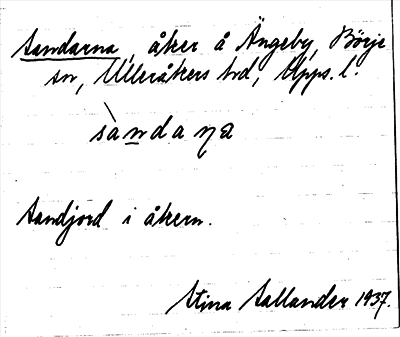 Sandarna, åker å Ängeby, Börje
sn, Ulleråkers hd, Upps. l.
sàndaɳa
Sandjord i åkern.
Stina Sallander 1937.